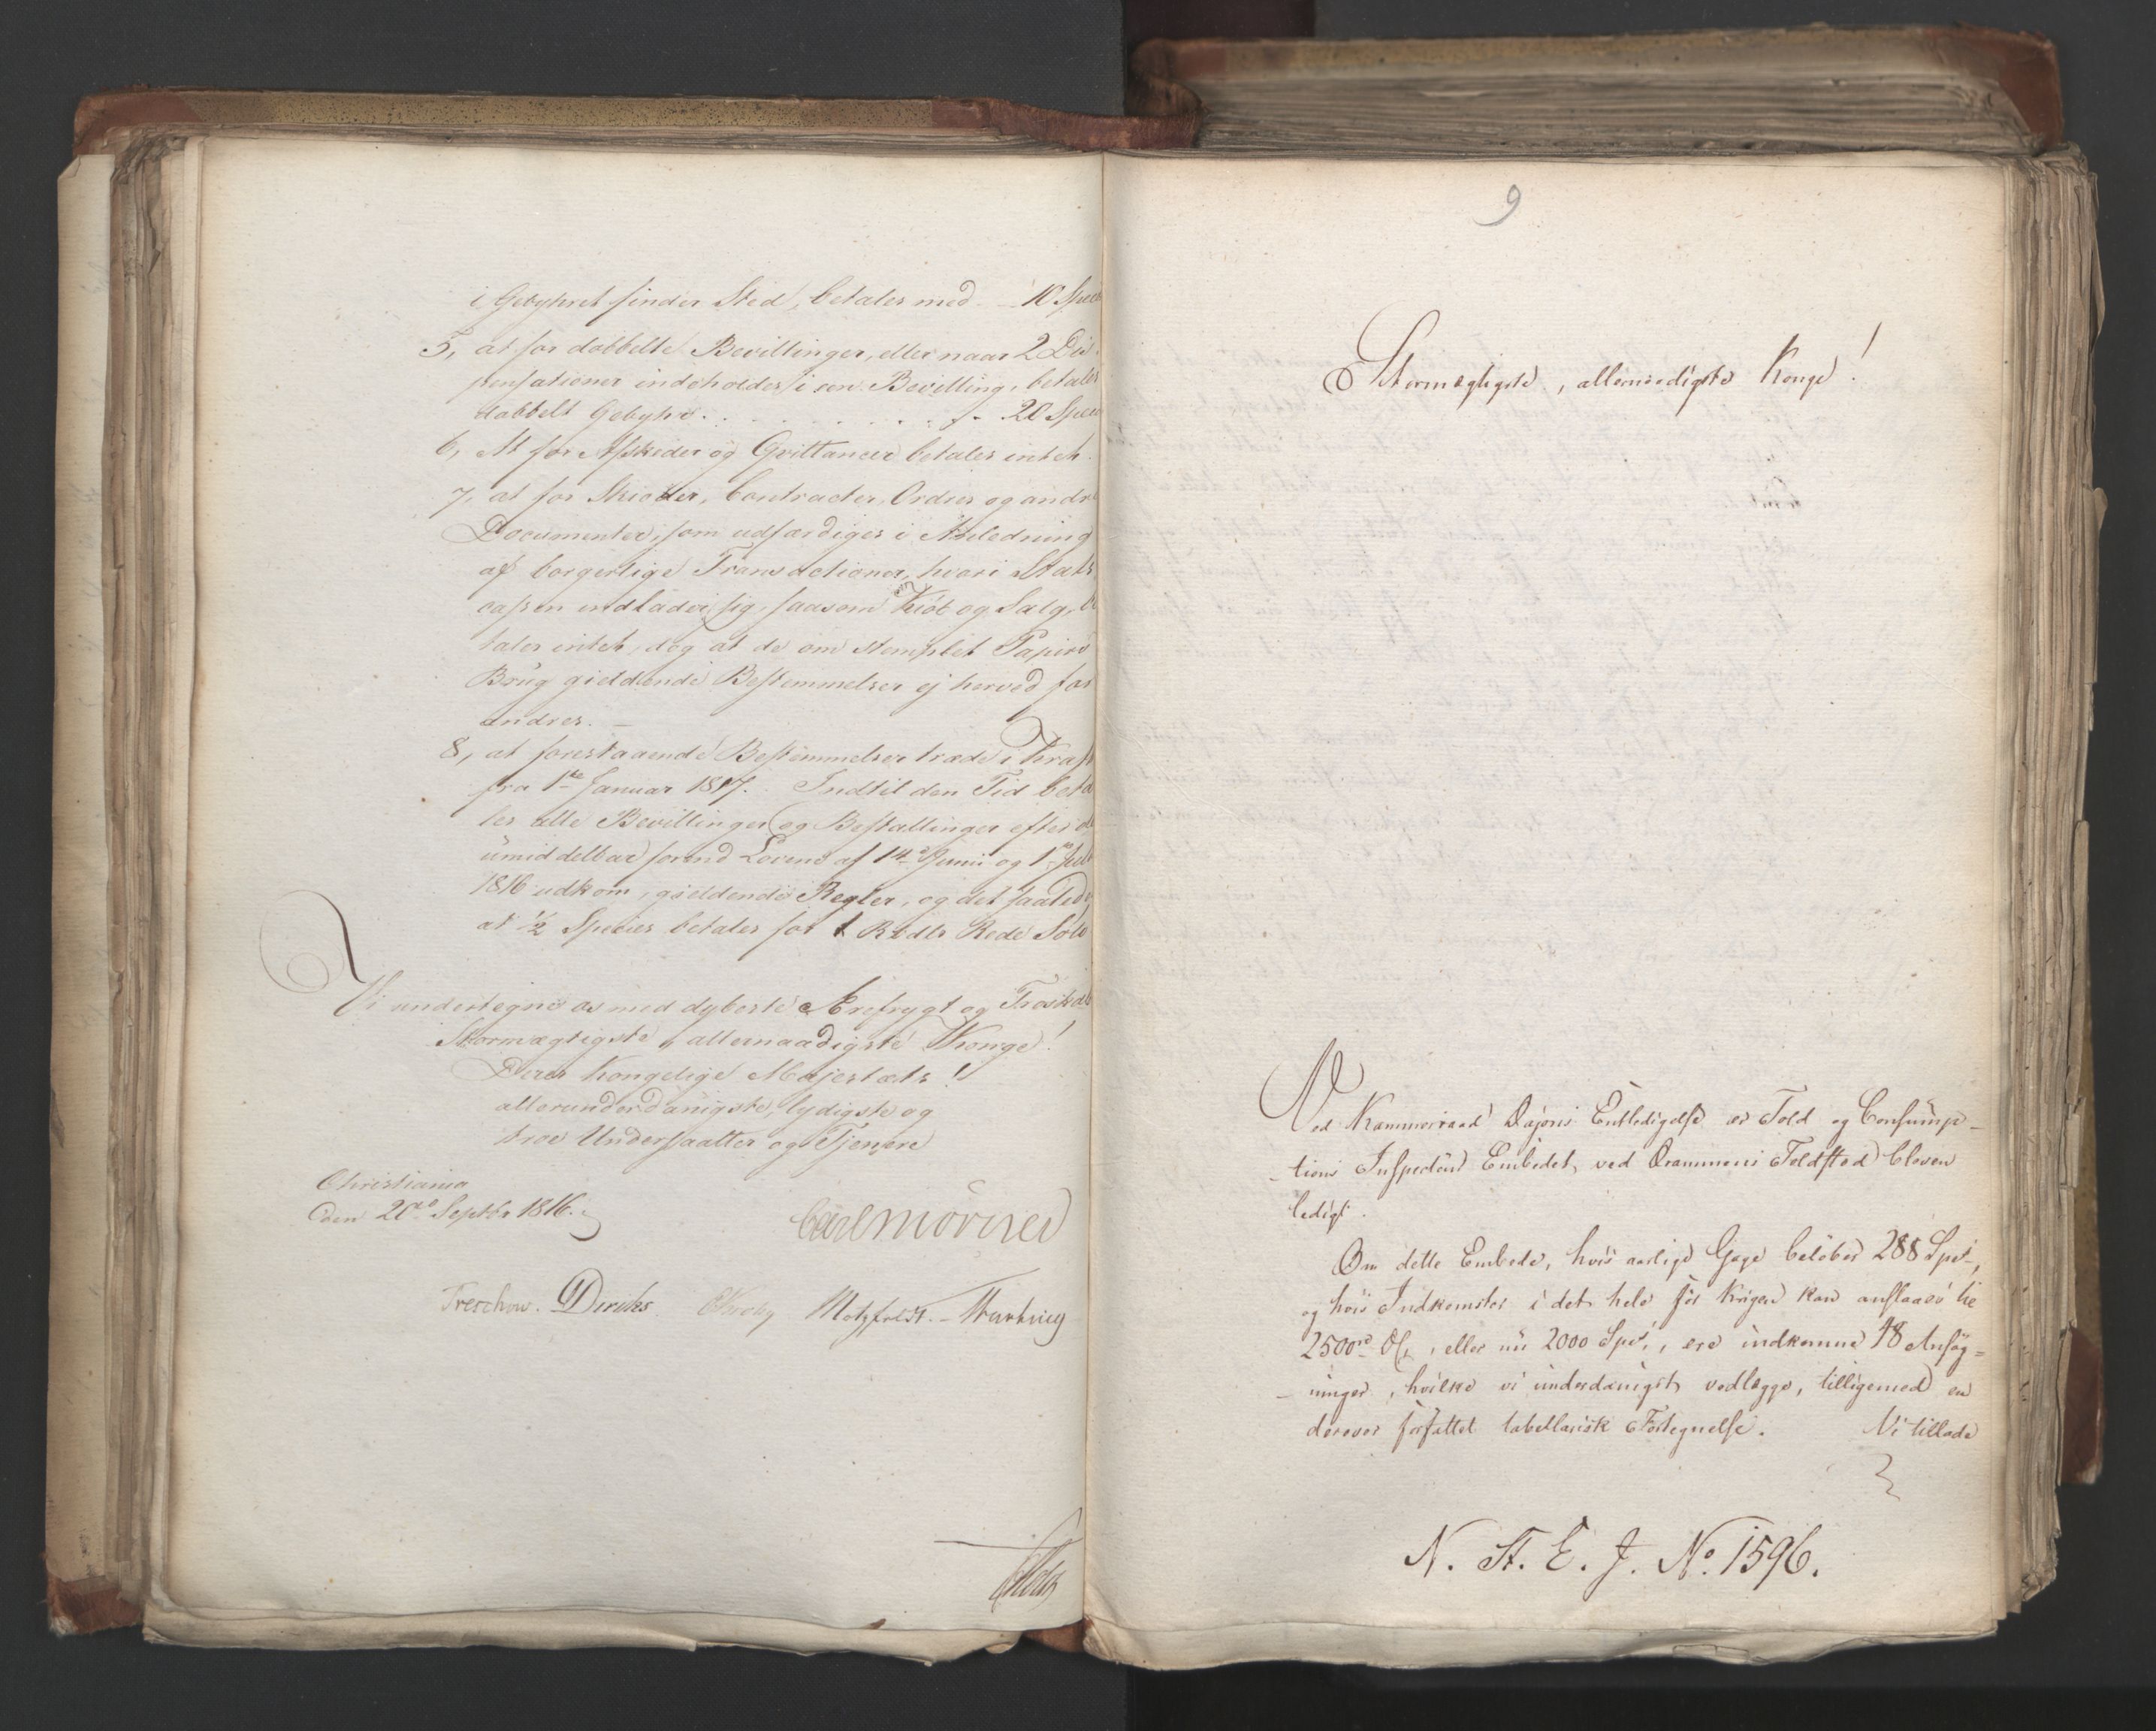 i Gebyhret finder Sted, betales med 10 Spec
5, at for dobbelte Bevillinger, eller naar 2 Dis-
pensationer indeholdes i een Bevilling, betales
dobbelt Gebyhr . . . . . . . 20 Spec
6, At for Afskeder og Qvittancer betales intet.
7, at for Skiøder, Contracter, Ordres og andre
Documenter, som udfærdiges i Anledning
af borgerlige Transactioner, hvori Stats
cassen indlader sig, saasom Kiøb og Salg, be
tales intet, dog at de om stemplet Papirs
Brug gieldende Bestemmelser ej herved for
andres. —
8, at forestaaende Bestemmelser træde i Kraft
fra 1te Januar 1817. Indtil den Tid beta
les alle Bevillinger og Bestallinger efter de
umiddelbar forend Lovene af 14de Junii og 1te Juli
1816 udkom, gieldende Regler, og det saaledes
at ½ Species betales for 1 Rbdlr Rede Sølv
Vi undertegne os med dybeste Ærefrygt og Troskab
Stormægtigste, allernaadigste Konge!
Deres Kongelige Majestæts!
allerunderdanigste, lydigste og
troe Undersaatter og Tjenere
Christiania
den 20de Septbr 1816.
Carl Mörner
Treschow. Diriks Krohg Motzfeldt. - Wartning
9
Stormægtigste, allernaadigste Konge!
Ved Kammerraad Dajons Entledigelse er Told og Consump-
tions Inspecteur Embedet ved Drammens Toldsted bleven
ledigt.
Om dette Embede, hvis aarlige Gage beløber 288 Spd,
og hvis Indkomster i det hele før Krigen kan anslaaes til
2500rd , eller nu 2000 Spd, ere indkomne 48 Ansøg=
ninger, hvilke vi underdanigst vedlægge, tilligemed en
derover forfattet tabellarisk Fortegnelse. Vi tillade
N. St. E. J. No. 1596.